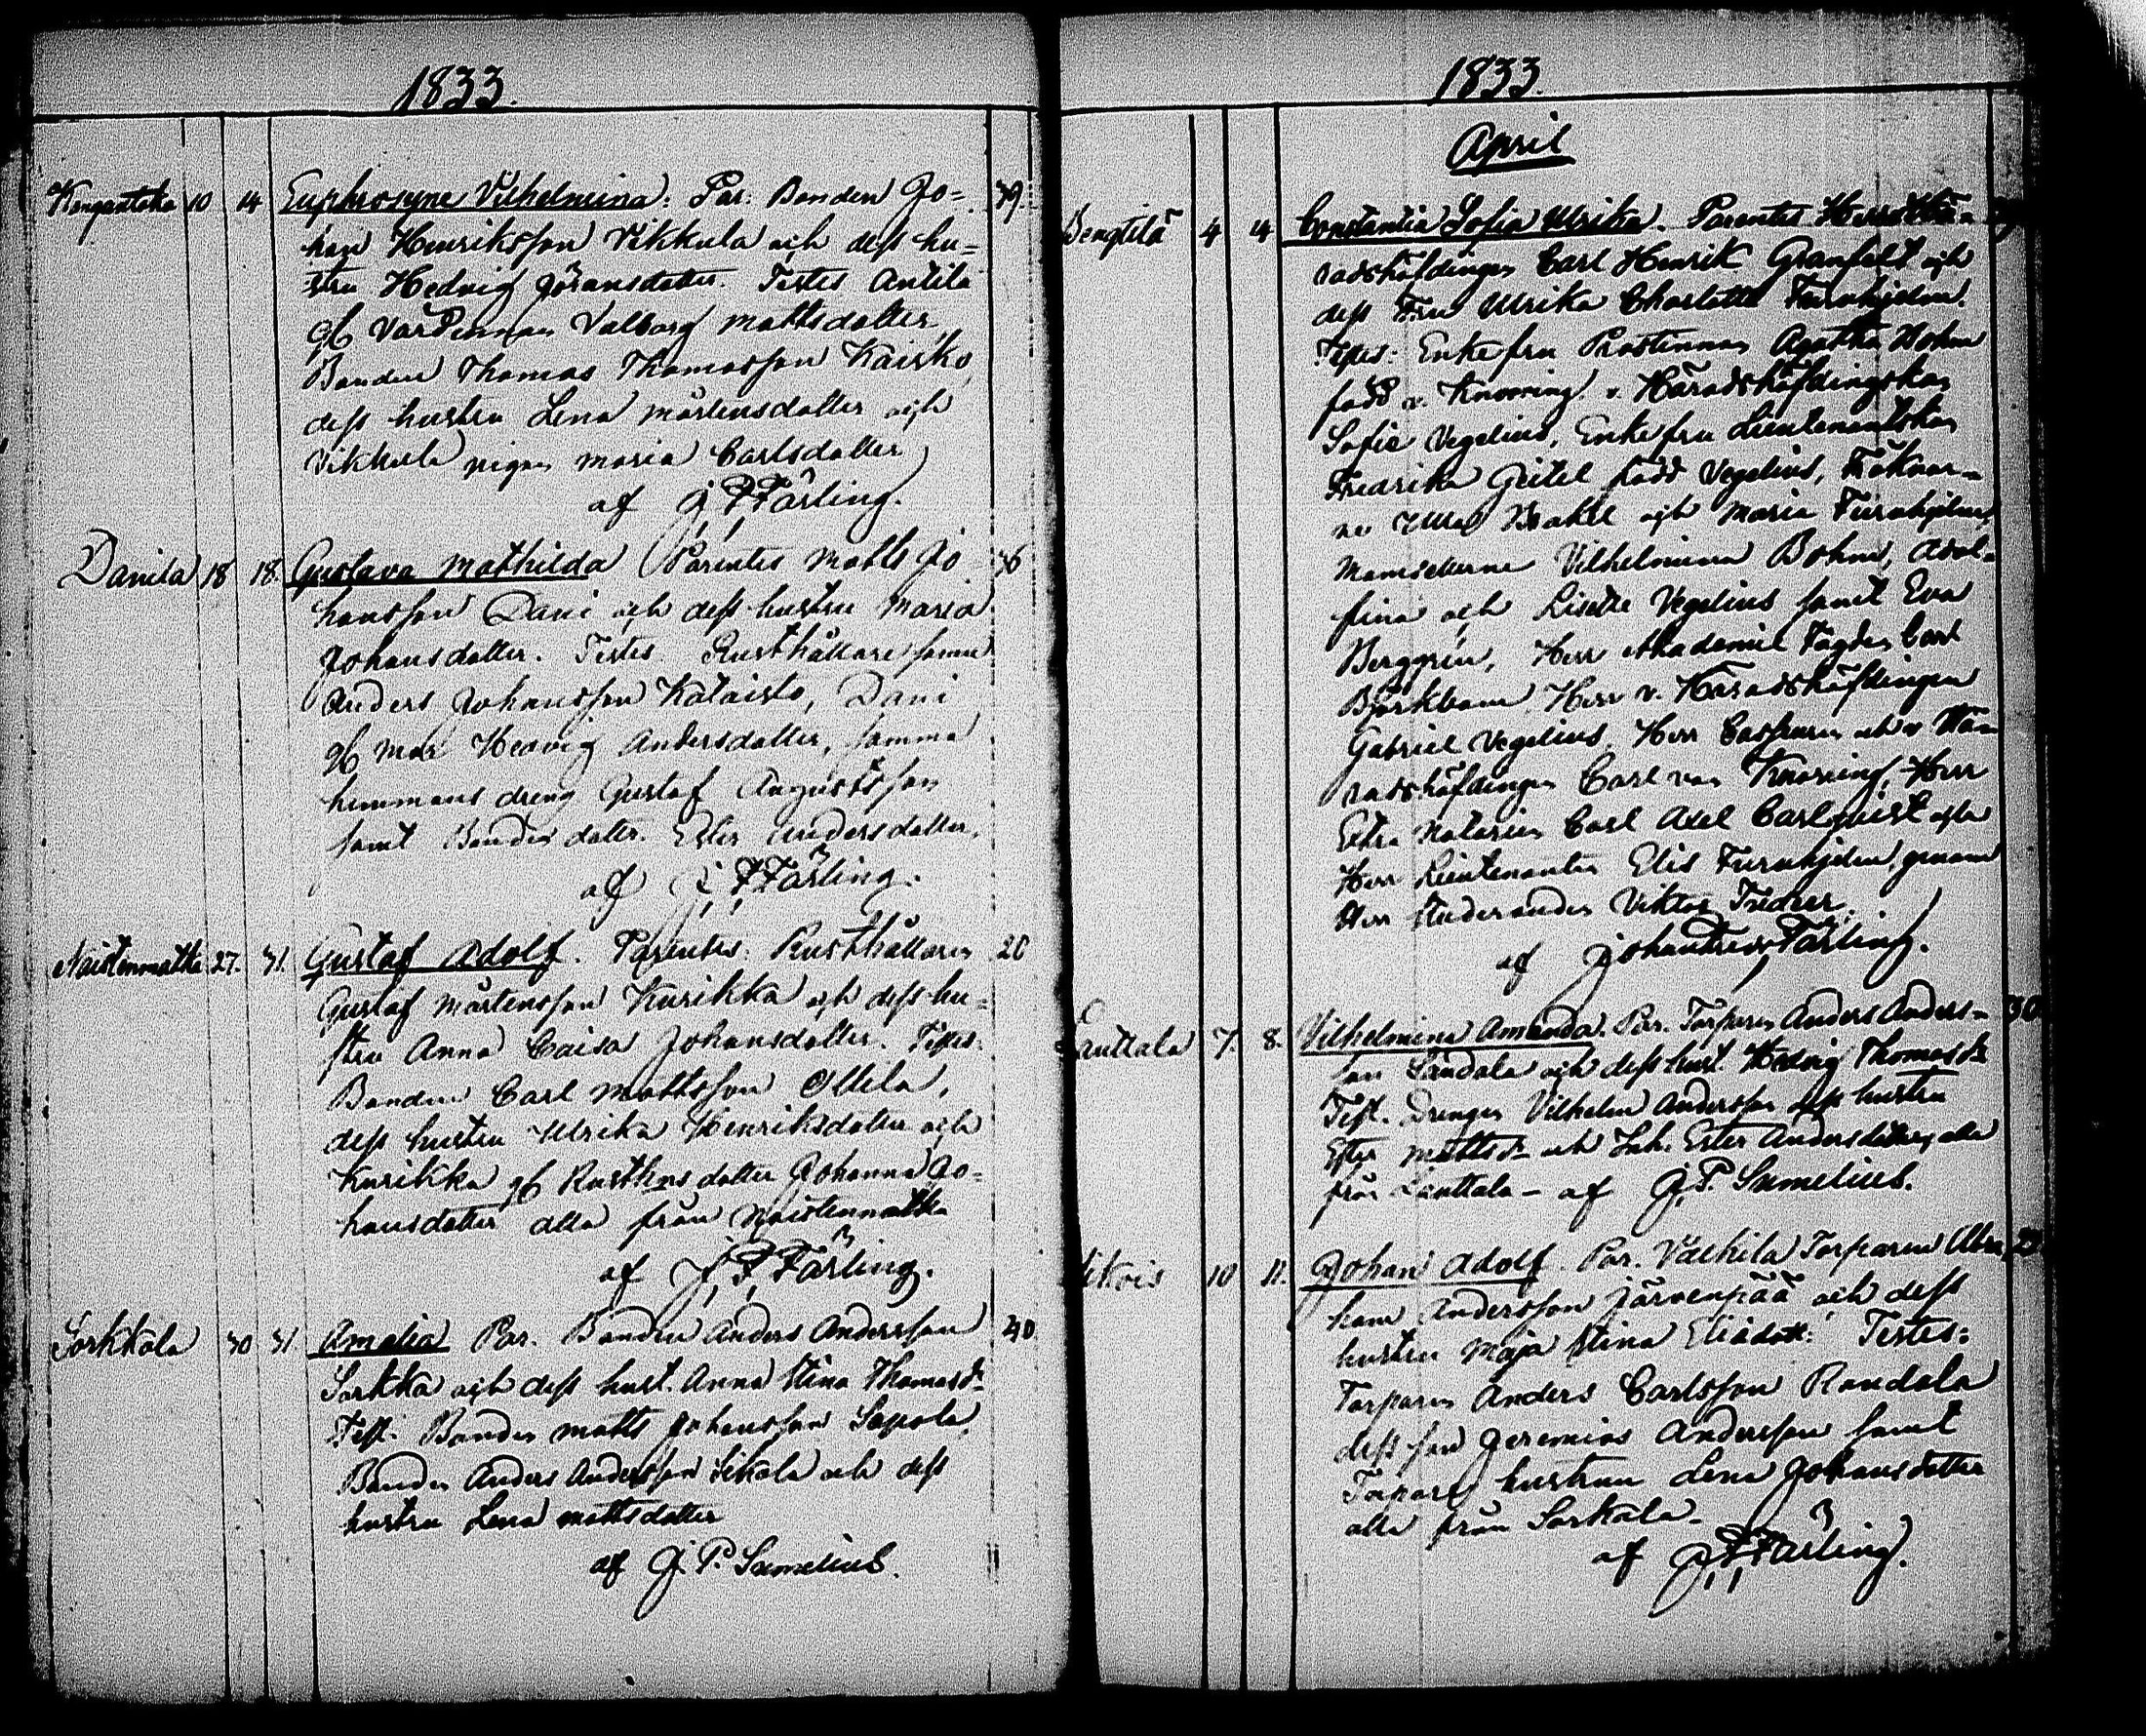 1833.
Kangantaka 10 14 Euphrosyne Vilhelmina. Par: Bonden Jo= 39.
han Henriksson Vikkula och dess hu=
stru Hedvig Jöransdotter. Testes Antila
gf Värdinnan Valborg Mattsdotter,
Bonden Thomas Thomasson Kaisko,
dess hustru Lena Mårtensdotter och
Vikkula pigan Maria Carlsdotter
af J F Färling.
Danila 18 18. Gustava Mathilda Parentes Matts Jo 36
hansson Dani och dess hustru Maria
Johansdotter. Testes Rusthållare sonen
Anders Johansson Kataisto, Dani
gf Mor Hedvig Andersdotter, samma
hemmans dreng Gustaf Augustsson
samt Bonded dotter. Ester Andersdotter.
af J F Färling.
Naistenmatka 27. 31. Gustaf Adolf. Parentes: Rusthållaren 26
Gustaf Mårtensson Kurikka och dess hu=
stru Anna Caisa Johansdotter. Testes:
Bonden Carl Mattsson Ollila,
dess hustru Ulrika Henriksdotter och
Kurikka gf Rusths dotter Johanna Jo=
hansdotter alla från Naistenmatka
af J. F. Färling.
Sorkkala 30 31. Amalia Par. Bonden Anders Andersson 40
Sorkka och dess hust. Anna Stina Thomasdr
Test. Bonden Matts Johansson Sepola,
Bonden Anders Andersson Sikala och dess
hustru Lena Mattsdotter
af G. P. Sumelius.
1833.
April
Bengtilä 4 4 Constantia Sofia Ulrika. Parentes Herr Hä=
radshöfdingen Carl Henrik Granfelt och
dess Fru Ulrika Charlotta Furuhjelm.
Testes: Enkefru Prostinnan Agatha Bohm
född v. Knorring, v. Häradshöfdingskan
Sofie Vegelius, Enkefru Lieutenantskan
Fredrika Geitel född Vegelius, Fröknar=
ne Ulla Brakel och Maria Furuhjelm,
Mamsellerne Vilhelmina Bohm, Adol=
fina och Lisette Vegelius samt Eva
Berggren, Herr Akademie Fogden Carl
Björkbom, Herr v. Häradshöfdingen
Gabriel Vegelius, Herr och v. Hä=
radshöfdingen Carl von Knorring, Herr
Extra Notarien Carl Axel Carlqvist och
Herr Lieutenanten Elis Furuhjelm, genom
Herr Studeranden Viktor
af Johan Fredr Färling.
Lauttala 7. 8. Vilhelmina Amanda. Par. Torparen Anders Anders= 30
son Sandala och dess hust. Hedvig Thomasdr
Test. Drengen Vilhelm Andersson dess hustru
Ester Mattsdr och Inh. Ester Andersdotter alla
från Lauttala – af G. P. Sumelius.
10 11. Johan Adolf. Par. Välkilä Torparen Abra 23
ham Andersson Järvenpää och dess
hustru Maja Stina Eliædott: Testes:
Torparen Anders Carlsson Randala
dess son Jeremias Andersson samt
Torpare hustrun Lena Johansdotter
alla från Sorkala.
af J. F. Färling.